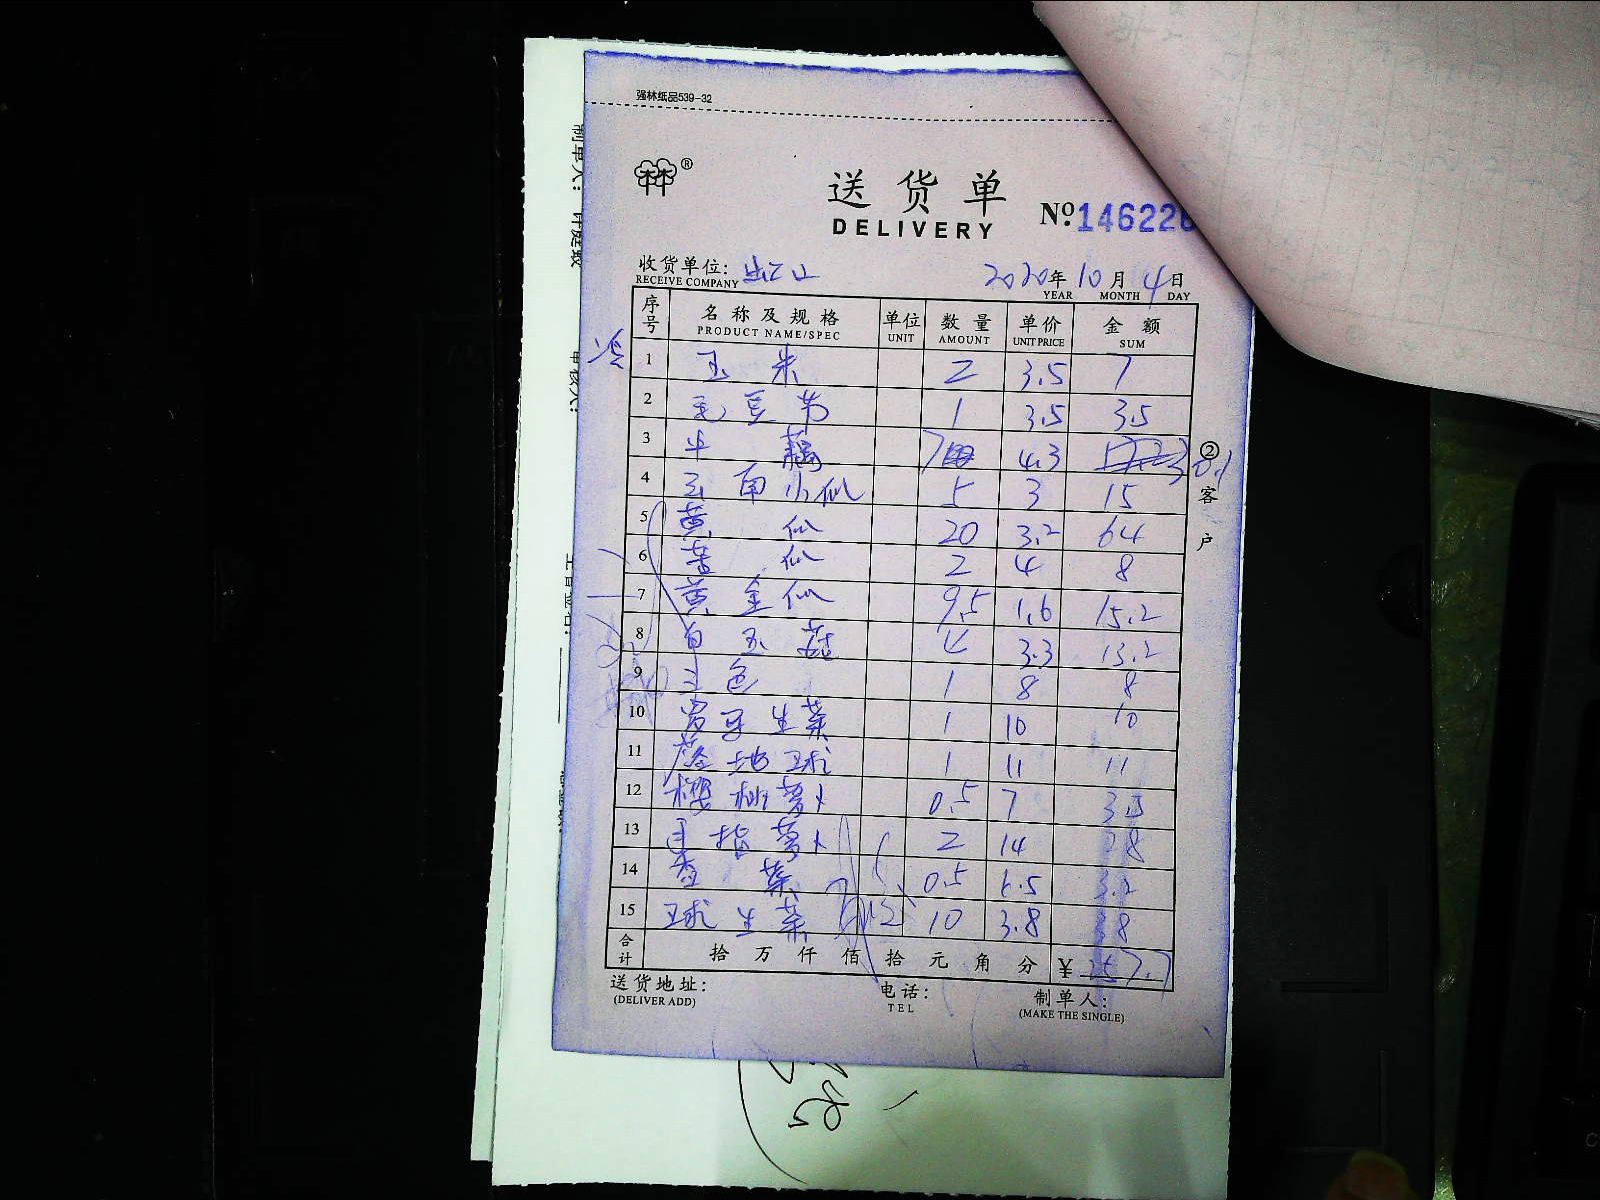 强林纸品539-32
® 送货单
DELIVERY
№ 146226
收货单位: 出江山 2020年10月4日
RECEIVE COMPANY YEAR MONTH DAY
序号 名称及规格 单位 数量 单价 金额
PRODUCT NAME/SPEC UNIT AMOUNT UNIT PRICE SUM
1 玉米 2 3.5 7
2 毛豆节 1 3.5 3.5
3 藕 7 4.3
4 小仙 5 3 15
5 黄仙 20 3.2 64
6 苦仙 2 4 8
7 黄金仙 9.5 1.6 15.2
8 白玉菇 4 3.3 13.2
9 三色 1 8 8
10 罗马生菜 1 10 10
11 落地球 1 11 11
12 樱桃萝卜 0.5 7 3.5
13 手指萝卜 2 14 28
14 香菜 0.5 6.5 3.2
15 球生菜 10 3.8 38
合计 拾万仟佰拾元角分 ¥ 257.7
②客户
送货地址: 电话: 制单人:
(DELIVER ADD) TEL (MAKE THE SINGLE)
制单人:
审核人:
主管签名: